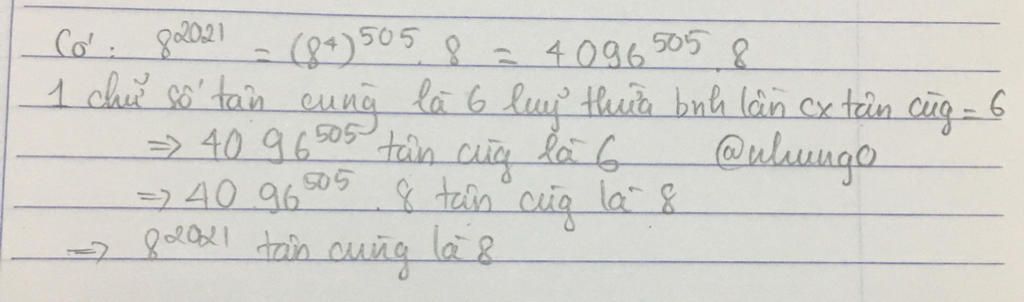 Có: 8^2021 = (8^4)^505 . 8 = 4096^505 . 8
1 chữ số tận cùng là 6 luỹ thừa bnh lần cx tận cùg = 6
=> 4096^505 tận cùg là 6 @nhung0
=> 4096^505 . 8 tận cùg là 8
=> 8^2021 tận cùng là 8